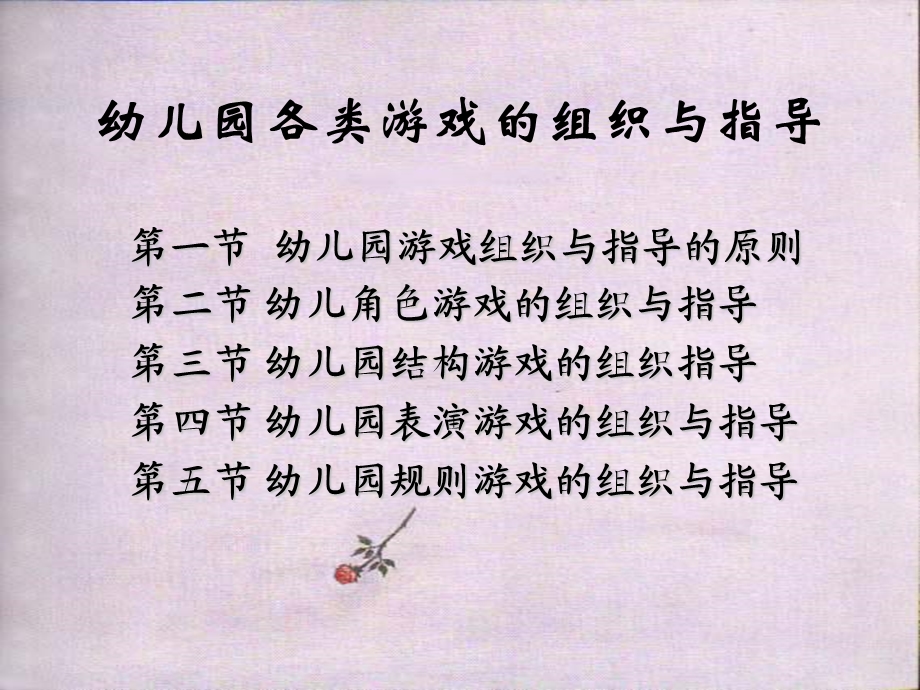 幼儿园各类游戏的组织与指导
第一节 幼儿园游戏组织与指导的原则
第二节 幼儿角色游戏的组织与指导
第三节 幼儿园结构游戏的组织指导
第四节 幼儿园表演游戏的组织与指导
第五节 幼儿园规则游戏的组织与指导